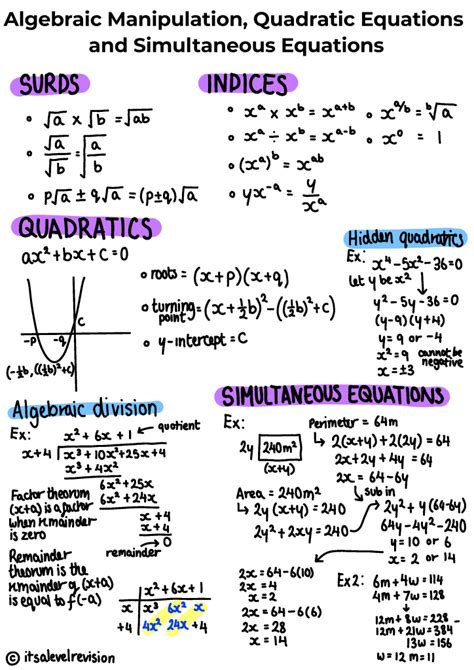 Algebraic Manipulation, Quadratic Equations
and Simultaneous Equations
SURDS
∘ √a × √b = √ab
∘ √a/√b = √(a/b)
∘ p√a ± q√a = (p±q)√a
INDICES
∘ xᵃ × xᵇ = xᵃ⁺ᵇ
∘ xᵃ ÷ xᵇ = xᵃ⁻ᵇ
∘ (xᵃ)ᵇ = xᵃᵇ
∘ yx⁻ᵃ = y/xᵃ
∘ x^(a/b) = ᵇ√a
∘ x⁰ = 1
QUADRATICS
ax² + bx + c = 0
-p
-q
c
(-½b, ((½b)²+c)
∘ roots = (x+p)(x+q)
∘ turning point = (x+½b)² - ((½b)²+c)
∘ y-intercept = C
Hidden quadratics
Ex: x⁴ - 5x² - 36 = 0
let y be x²
y² - 5y - 36 = 0
(y-9)(y+4)
y = 9 or -4
x² = 9 cannot be negative
x = ±3
Algebraic division
Ex:
x² + 6x + 1 ← quotient
x+4 | x³ + 10x² + 25x + 4
x³ + 4x²
6x² + 25x
6x² + 24x
x + 4
x + 4
0
remainder
Factor theorum
(x+a) is a factor
when remainder
is zero
Remainder
theorum is the
remainder of (x+a)
is equal to f(-a)
x² + 6x + 1
x x³ 6x² x
+4 4x² 24x +4
SIMULTANEOUS EQUATIONS
Ex:
2y 240m²
(x+y)
Perimeter = 64m
↳ 2(x+y) + 2(2y) = 64
2x + 2y + 4y = 64
2x = 64 - 6y
sub in
Area = 240m²
↳ 2y(x+y) = 240
2y² + 2xy = 240
2y² + y(64-6y)
64y - 4y² - 240
y = 10 or 6
x = 2 or 14
2x = 64 - 6(10)
2x = 4
x = 2
2x = 64 - 6(6)
2x = 28
x = 14
Ex2: 6m + 4w = 114
4m + 7w = 128
12m + 8w = 228
12m + 21w = 384
13w = 156
w = 12 m = 11
© itsalevelrevision